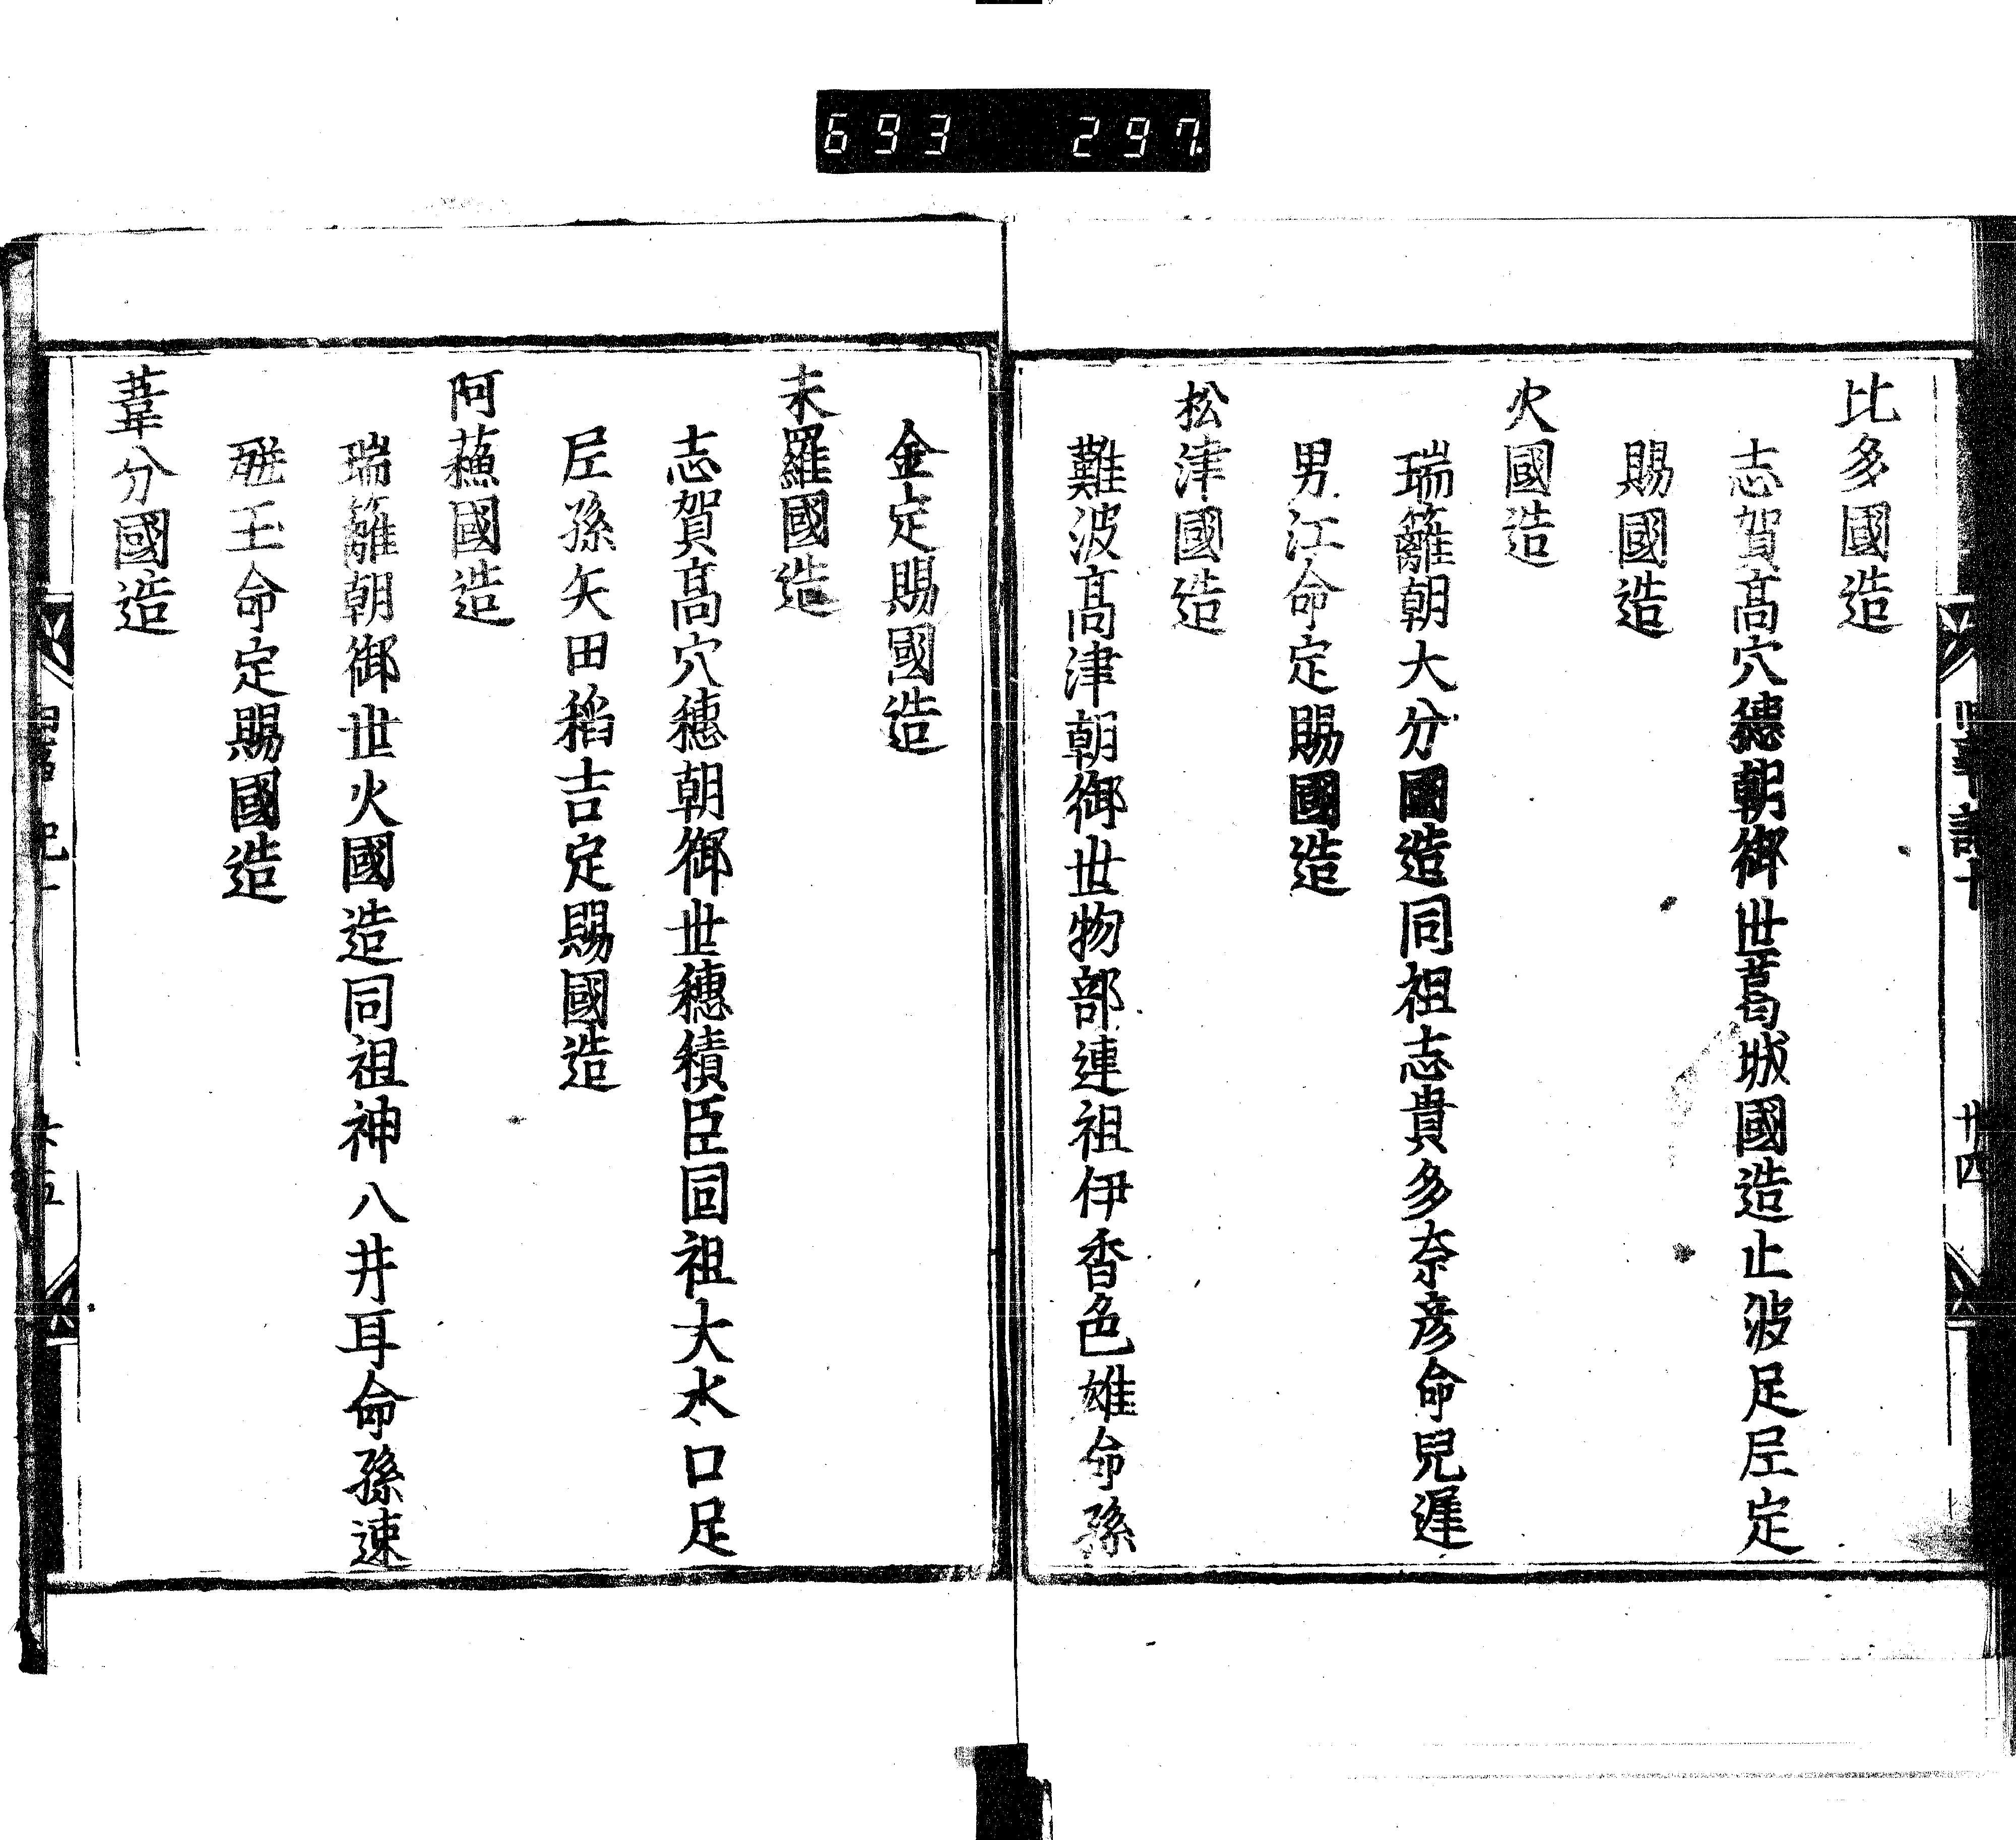 693 297
比多國造
志賀髙穴穗朝御世葛城國造止波足尼定
賜國造
火國造
瑞籬朝大分國造同祖志貴多奈彦命兒遲
男江命定賜國造
松津國造
難波髙津朝御世物部連祖伊香色雄命孫
卅四
金定賜國造
末羅國造
志賀髙穴穗朝御世穗積臣同祖大水口足
尼孫矢田稻吉定賜國造
阿蘇國造
瑞籬朝御世火國造同祖神八井耳命孫速
瓶玉命定賜國造
葦分國造